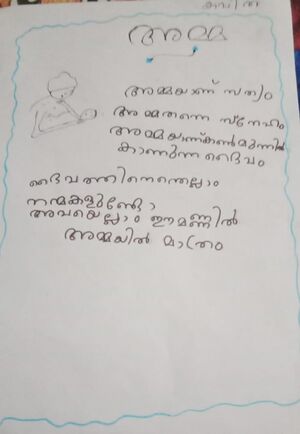 കവിത
അമ്മ
അമ്മയാണ് സത്യം
അമ്മതന്നെ സ്നേഹം
അമ്മയാണ്കൺമുന്നിൽ
കാണുന്ന ദൈവം
ദൈവത്തിനെന്തെല്ലാം
നന്മകളുണ്ടോ
അവയെല്ലാം ഈമണ്ണിൽ
അമ്മയിൽ മാത്രം